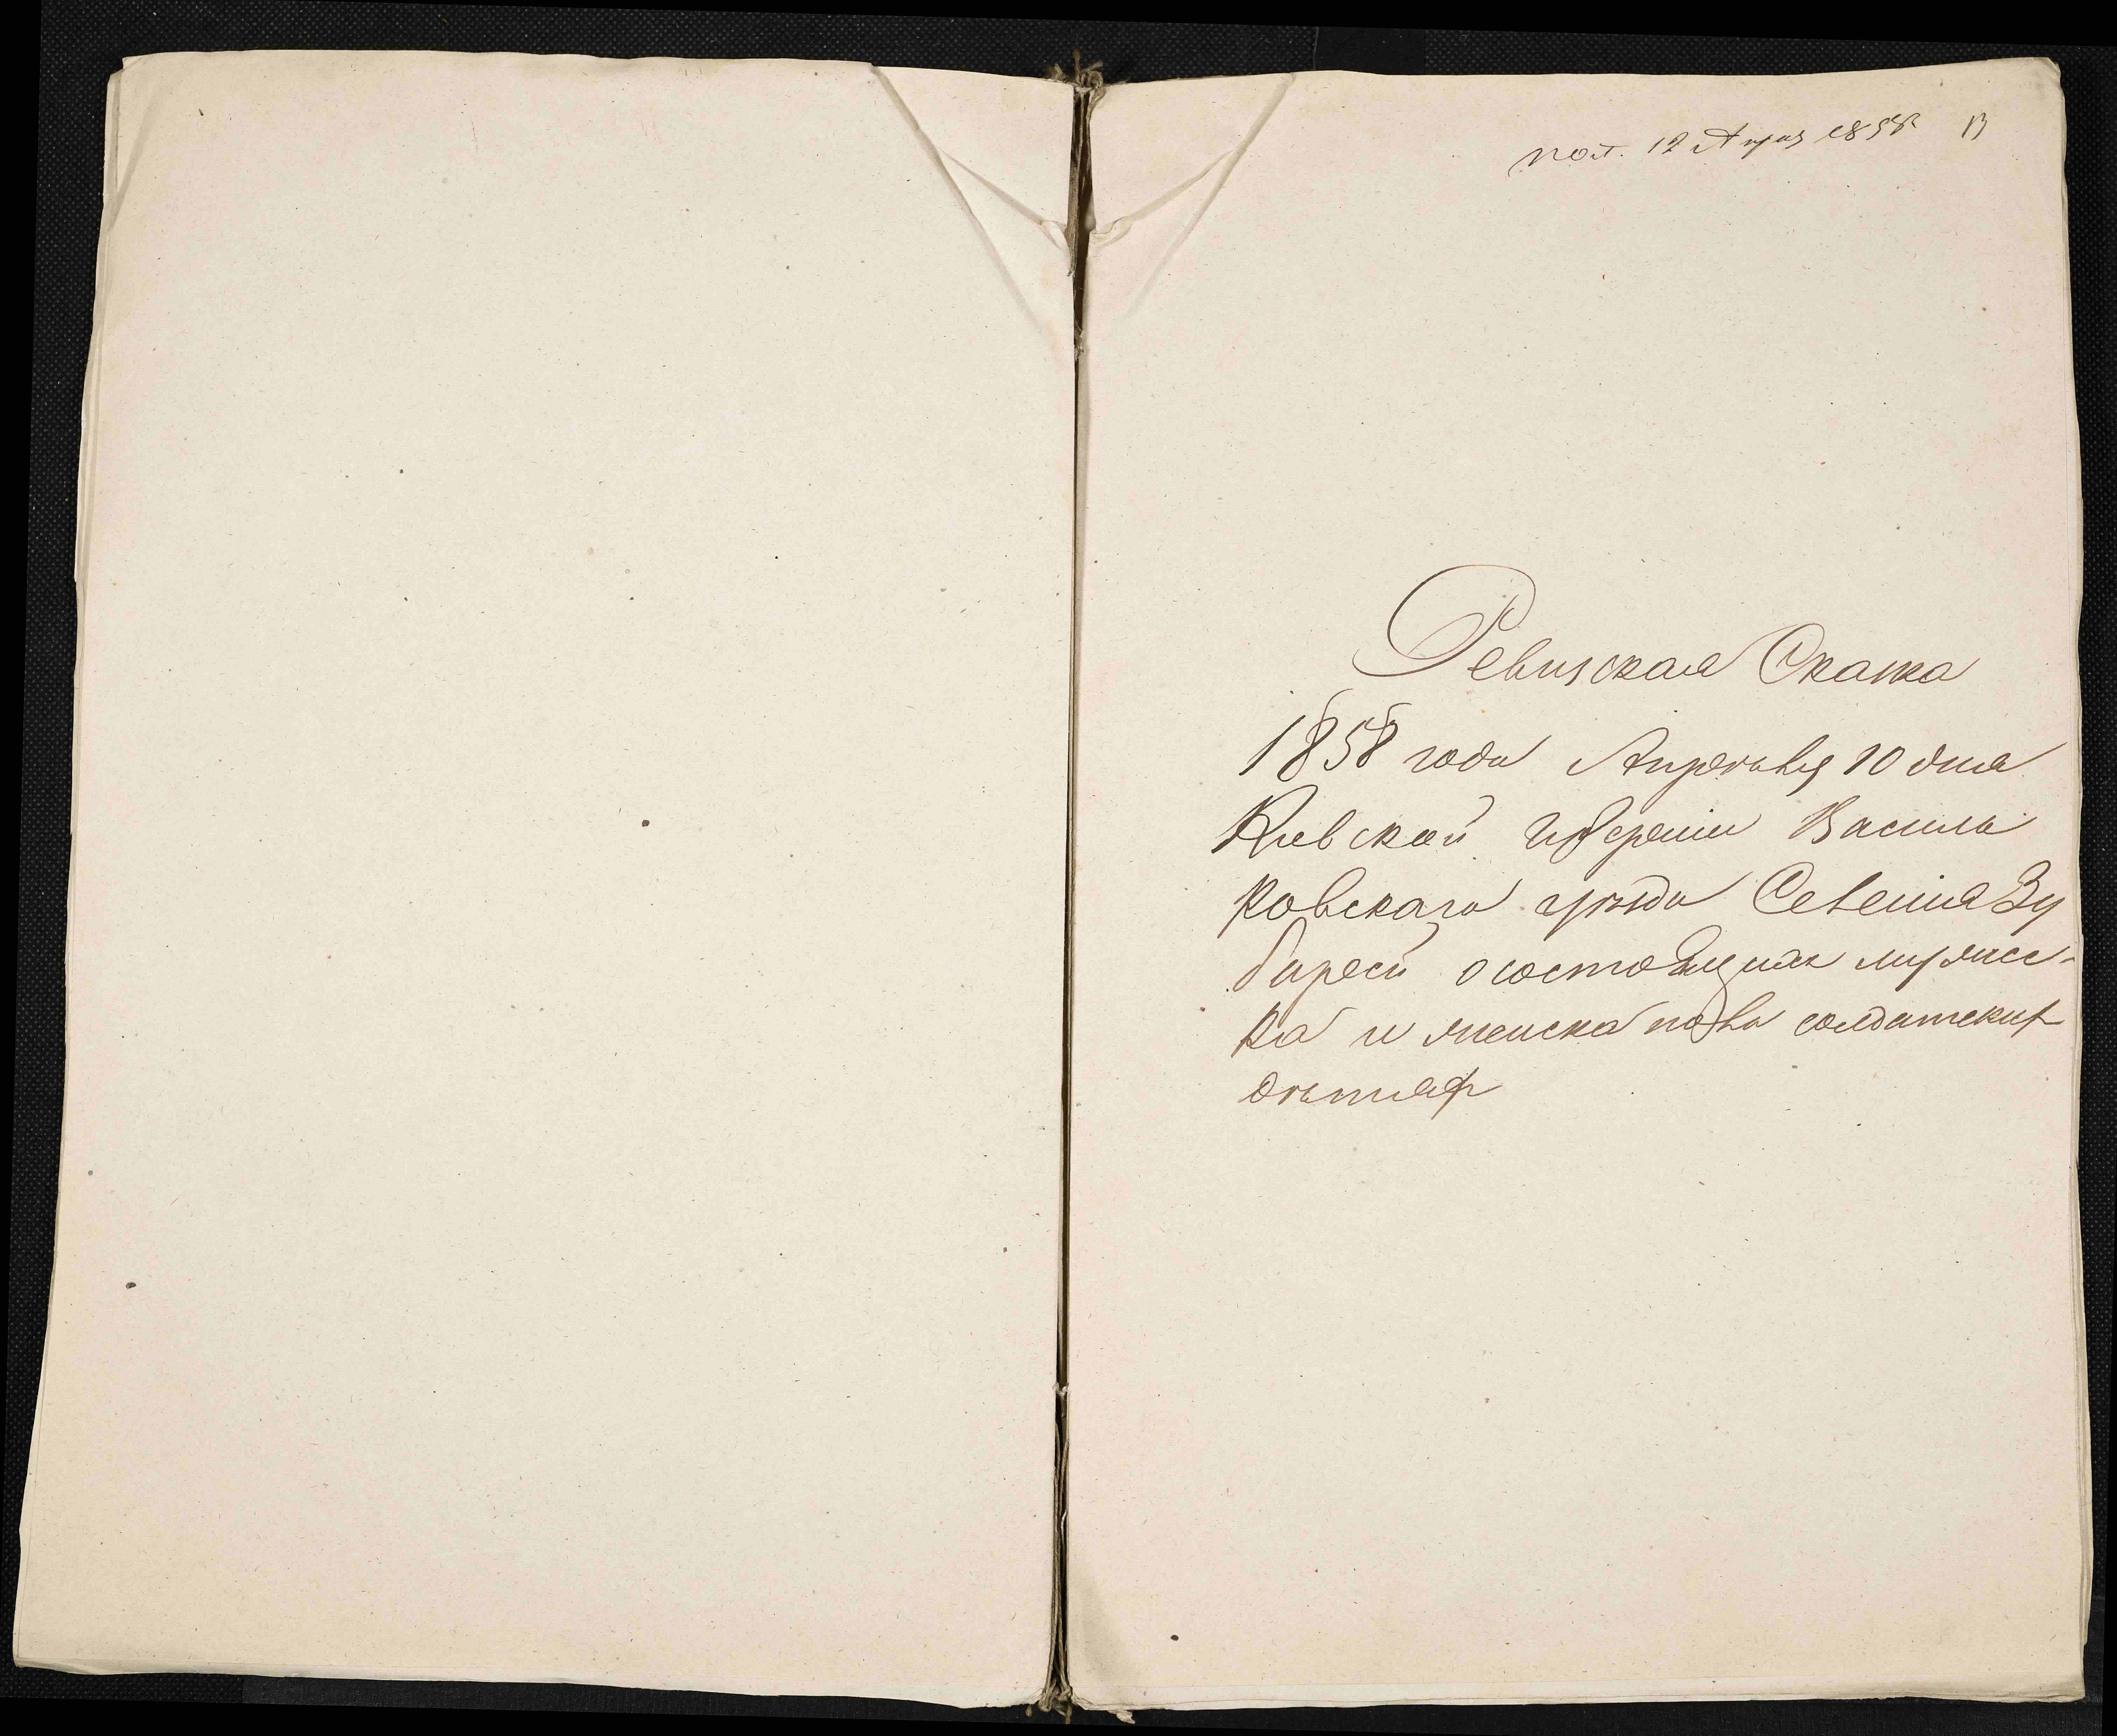 пол. 12 Апрл 1858 13
Ревизская Скаска
1858 года Апреля 10 дня
Киевской губернии Василь
ковскаго уѣзда Селения Зу
барей о состоящих мужес-
ка и женска пола солдатских
дѣтях